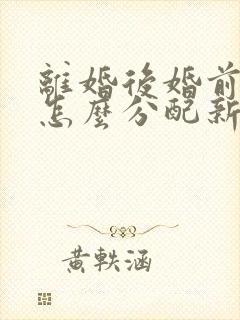 離婚後婚前
怎麼分配新
黃軼涵